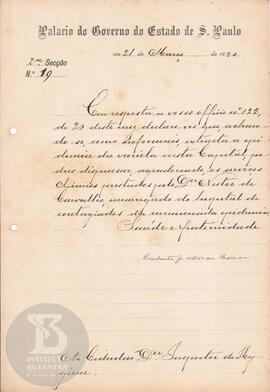 Palacio do Governo do Estado de S. Paulo
em 21 de Março de 189
2ª Secção
N.º 19
Em resposta a vosso officio nº 122,
de 20 deste mez, declaro vos que, achan
do se, como informais, extincta a epi
demia da variola nesta Capital, po
deis dispensar, agradecendo, os serviços
clinicos prestados pelo Dr. Nestor de
Carvalho, encarregado do Hospital de
contagiados da mencionada epidemia
Saude e fraternidade
Ao Cidadão Dr. Inspector de Hy
giene.
INSTITUTO
BUTANTAN